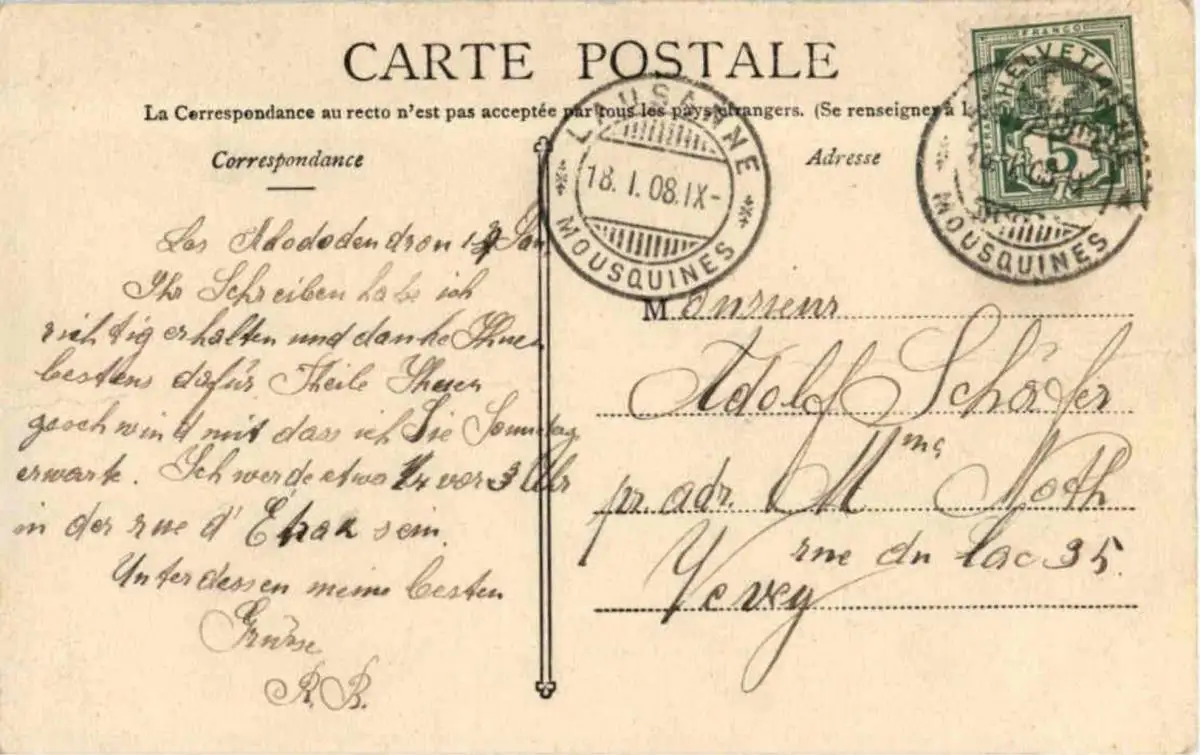 CARTE POSTALE
La Correspondance au recto n'est pas acceptée par tous les pays étrangers. (Se renseigner à l
Correspondance
Adresse
LAUSANNE
18. I. 08. IX-
MOUSQUINES
FRANCO
HELVETIA
5
MOUSQUINES
Les Rdododendron 17 Jan
Ihr Schreiben habe ich
richtig erhalten und danke Ihnen
bestens dafür. Theile Ihnen
geschwind mit dass ich Sie Sonntag
erwarte. Ich werde etwa 1/4 vor 3 Uhr
in der rue d' Etraz sein.
Unterdessen meine besten
Grüsse
R. B.
Monsieur
Adolf Schäfer
pr. adr. Mme Noth
rue du Lac 35.
Vevey